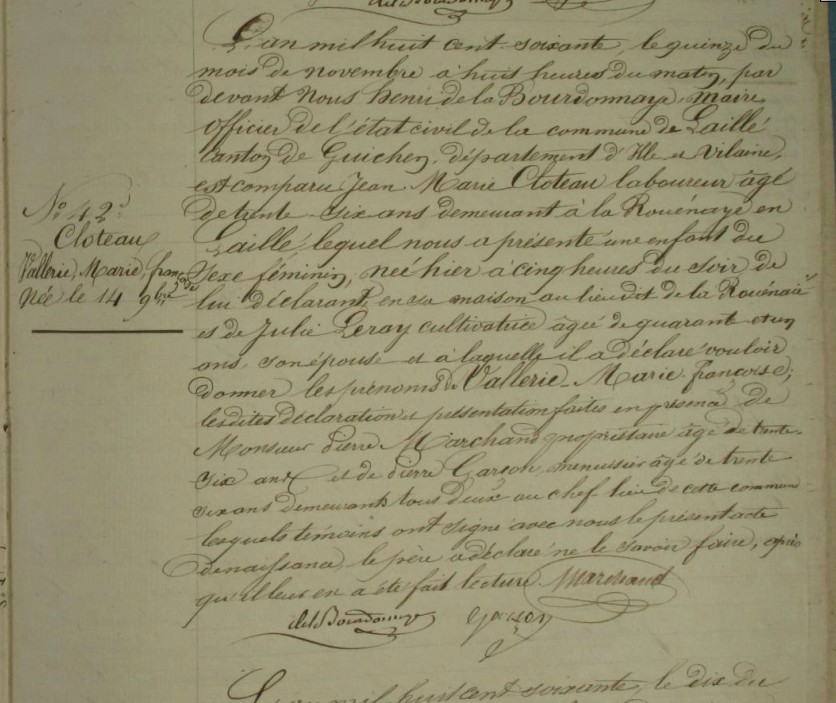 L'an mil huit cent soixante, le quinze du
mois de novembre à huit heures du matin, par
devant Nous henri de la Bourdonnaye, maire
officier de l'état civil de la commune de Laillé
Canton de Guichen, département d'Ille et Vilaine,
est comparu Jean Marie Cloteau laboureur âgé
de trente six ans demeurant à la Rouënaye en
Laillé, lequel nous a présenté une enfant du
Sexe féminin, neé hier à cinq heures du soir de
lui déclarant, en sa maison au lieu dit de la Rouënaie
et de Julie Leray cultivatrice âgée de quarante et un
ans, son épouse et à laquelle il a déclaré vouloir
donner les prénoms de Vallerie Marie françoise;
lesdites déclaration et présentation faites en présence de
Monsieur pierre Marchand propriétaire âgé de trente
six ans et de pierre Garson, menuisier âgé de trente
six ans demeurants tous deux au chef lieu de cette commune
lesquels témoins ont signé avec nous le présent acte
de naissance, le père a déclaré ne le savoir faire, après
qu'il leur en a été fait lecture Marchand
Garson
No. 42
Cloteau
Vallerie, Marie, françoise
Née le 14 9bre
L'an mil huit cent soixante, le dix du